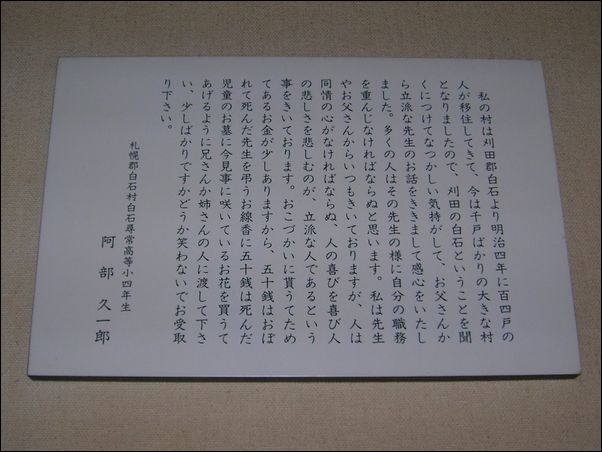 私の村は刈田郡白石より明治四年に百四戸の
人が移住してきて、今は千戸ばかりの大きな村
となりましたので、刈田の白石ということを聞
くにつけてなつかしい気持がして、お父さんか
ら立派な先生のお話をききまして感心をいたし
ました。多くの人はその先生の様に自分の職務
を重んじなければならぬと思います。私は先生
やお父さんからいつもきいておりますが、人は
同情の心がなければならぬ、人の喜びを喜び人
の悲しさを悲しむのが、立派な人であるという
事をきいております。おこづかいに貰うてため
てあるお金が少しありますから、五十銭はおぼ
れて死んだ先生を弔うお線香に五十銭は死んだ
児童のお墓に今見事に咲いているお花を買うて
あげるように兄さんか姉さんの人に渡して下さ
い、少しばかりですかどうか笑わないでお受取
り下さい。
札幌郡白石村白石尋常高等小四年生
阿部久一郎